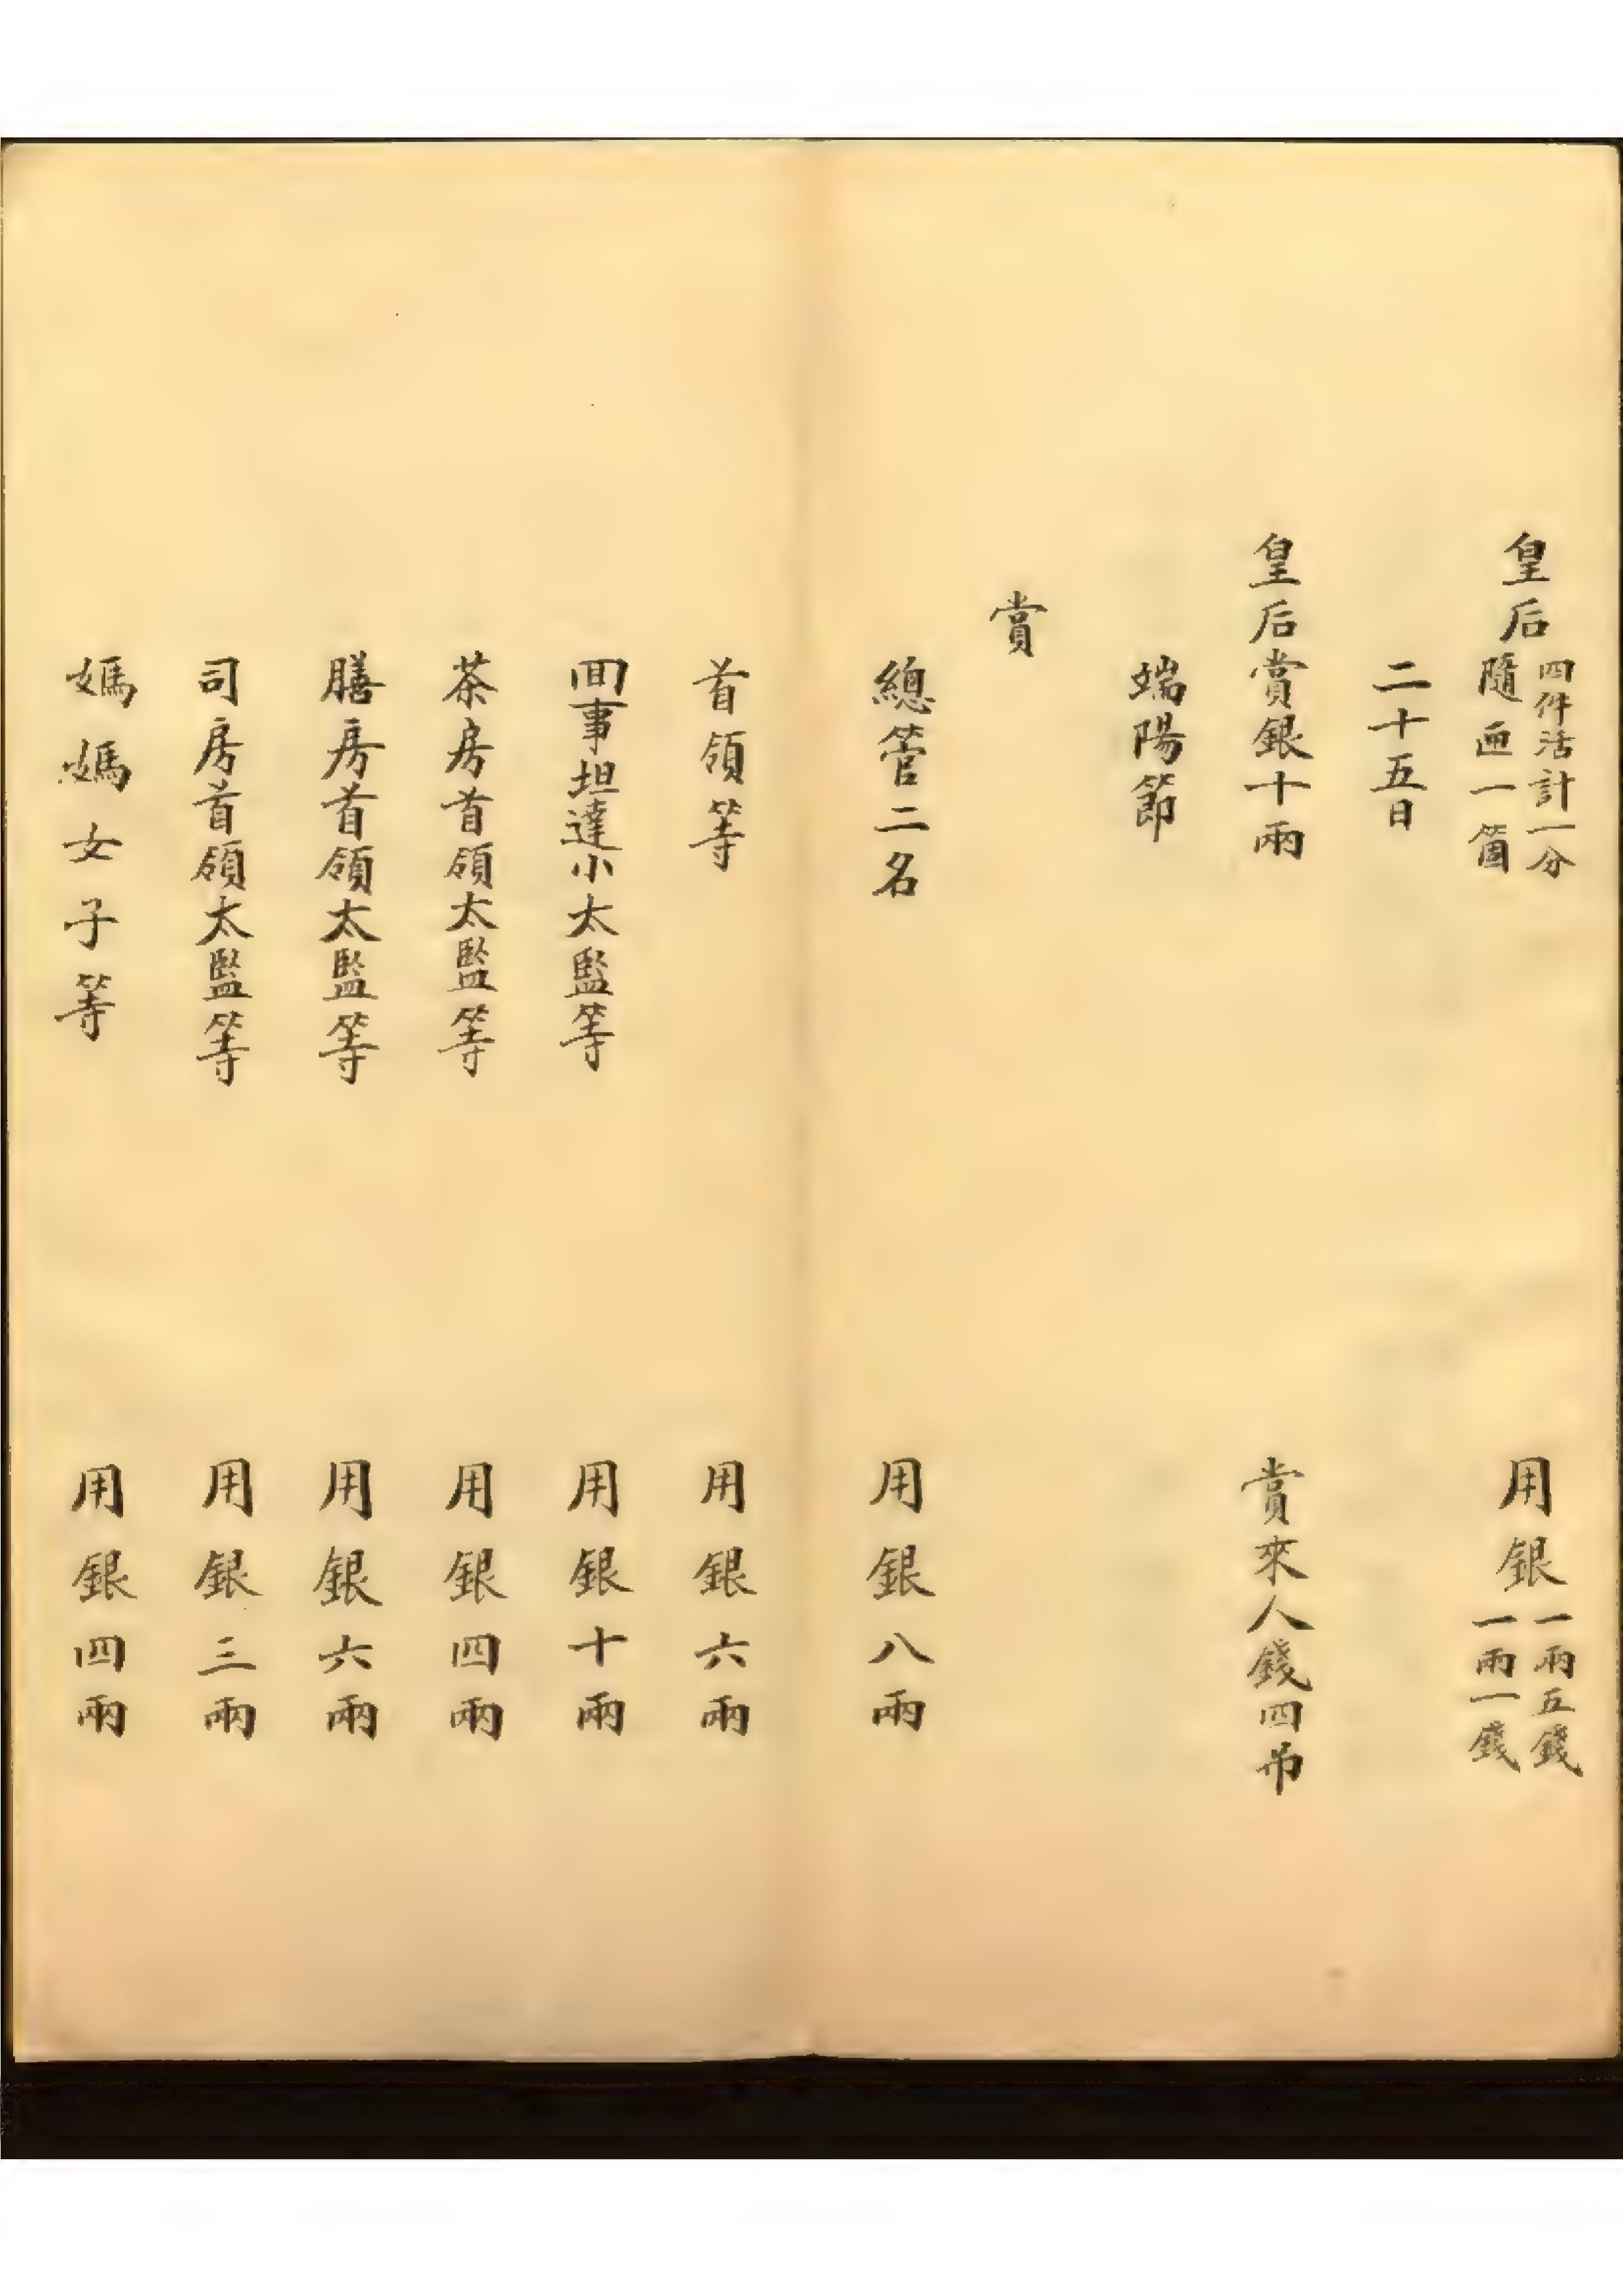 皇后四件活計一分隨匣一箇 用銀一兩五錢一兩一錢
二十五日
皇后賞銀十兩 賞來人錢四吊
端陽節
賞
總管二名 用銀八兩
首領等 用銀六兩
回事坦達小太監等 用銀十兩
茶房首領太監等 用銀四兩
膳房首領太監等 用銀六兩
司房首領太監等 用銀三兩
媽媽女子等 用銀四兩